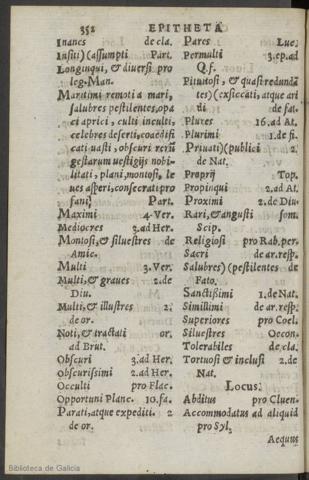 352 EPITHETA
Inanes de cla.
Insiti) (assumpti Part.
Longinqui, & diversi pro
leg. Man.
Maritimi remoti a mari,
salubres pestilentes, opa
ci aprici, culti inculti,
celebres deserti, coædifi
cati vasti, obscuri rerū
gestarum vestigijs nobi-
litati, plani, montosi, le
ves asperi, consecrati pro
fani) Part.
Maximi 4. Ver.
Mediocres 3. ad Her.
Montosi, & silvestres de
Amic.
Multi 3. Ver.
Multi, & graves 2. de
Diu.
Multi, & illustres 2.
de or.
Noti, & tractati or.
ad Brut.
Obscuri 3. ad Her.
Obscurissimi 2. ad Her.
Occulti pro Flac.
Opportuni Planc. 10. fa.
Parati, atque expediti. 2
de or.
Pares Luc.
Permulti 3. ep. ad
Q. f.
Pituitosi, & quasi redundā
tes) (exsiccati, atque ari
di de fat.
Plures 16. ad At.
Plurimi 1. de fi.
Privati) (publici 2.
de Nat.
Proprij Top.
Propinqui 2. ad At.
Proximi 2. de Diu.
Rari, & angusti som.
Scip.
Religiosi pro Rab. per.
Sacri de ar. resp.
Salubres) (pestilentes de
Fato.
Sanctissimi 1. de Nat.
Simillimi de ar. resp.
Superiores pro Coel.
Silvestres Oecon.
Tolerabiles de cla.
Tortuosi & inclusi 2. de
Nat.
Locus.
Abditus pro Cluen.
Accommodatus ad aliquid
pro Syl.
Aequus
Biblioteca de Galicia